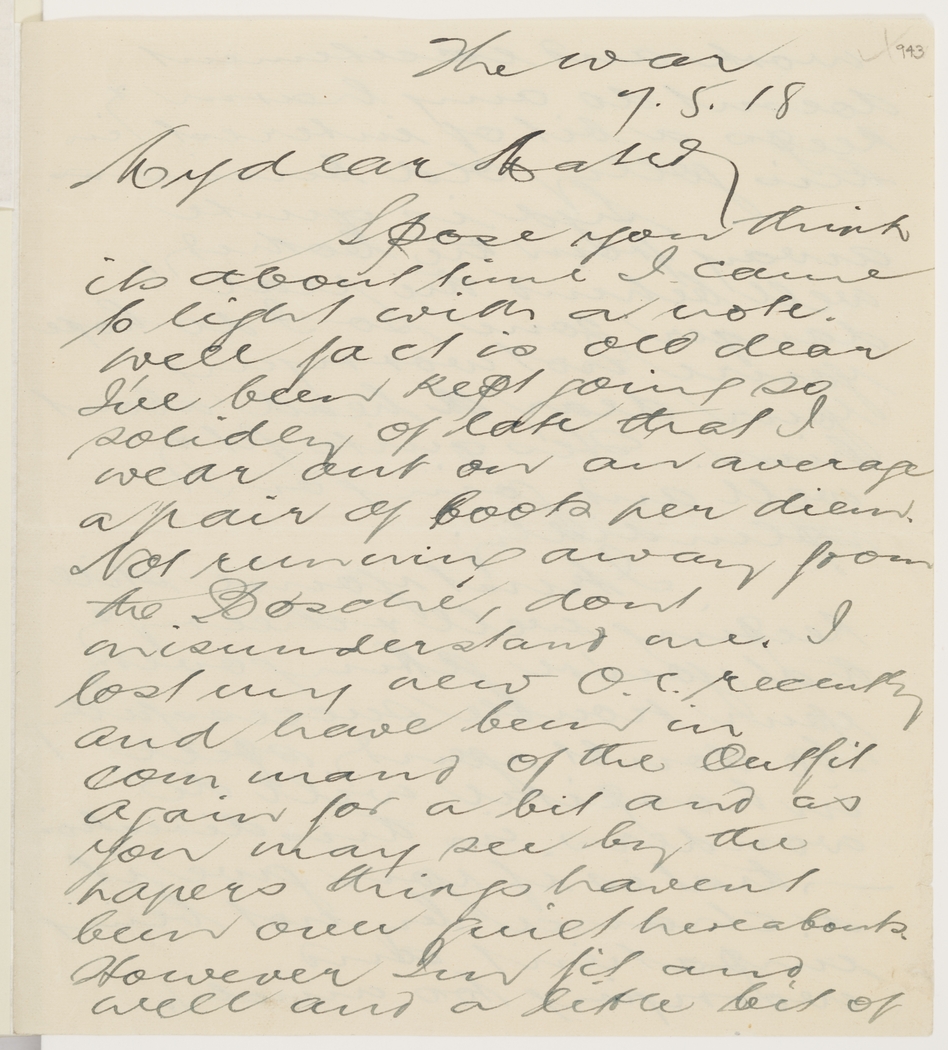 943
The war
7.5.18
My dear
Spose you think
its about time I came
to light with a note.
Well fact is old dear
I've been kept going so
solidly of late that I
wear out on an average
a pair of boots per diem.
Not running away from
the Bosche, dont
misunderstand me. I
lost my new O.C. recently
and have been in
command of the Outfit
again for a bit and as
you may see by the
papers things havent
been over quiet hereabouts.
However Im fit and
well and a little bit of